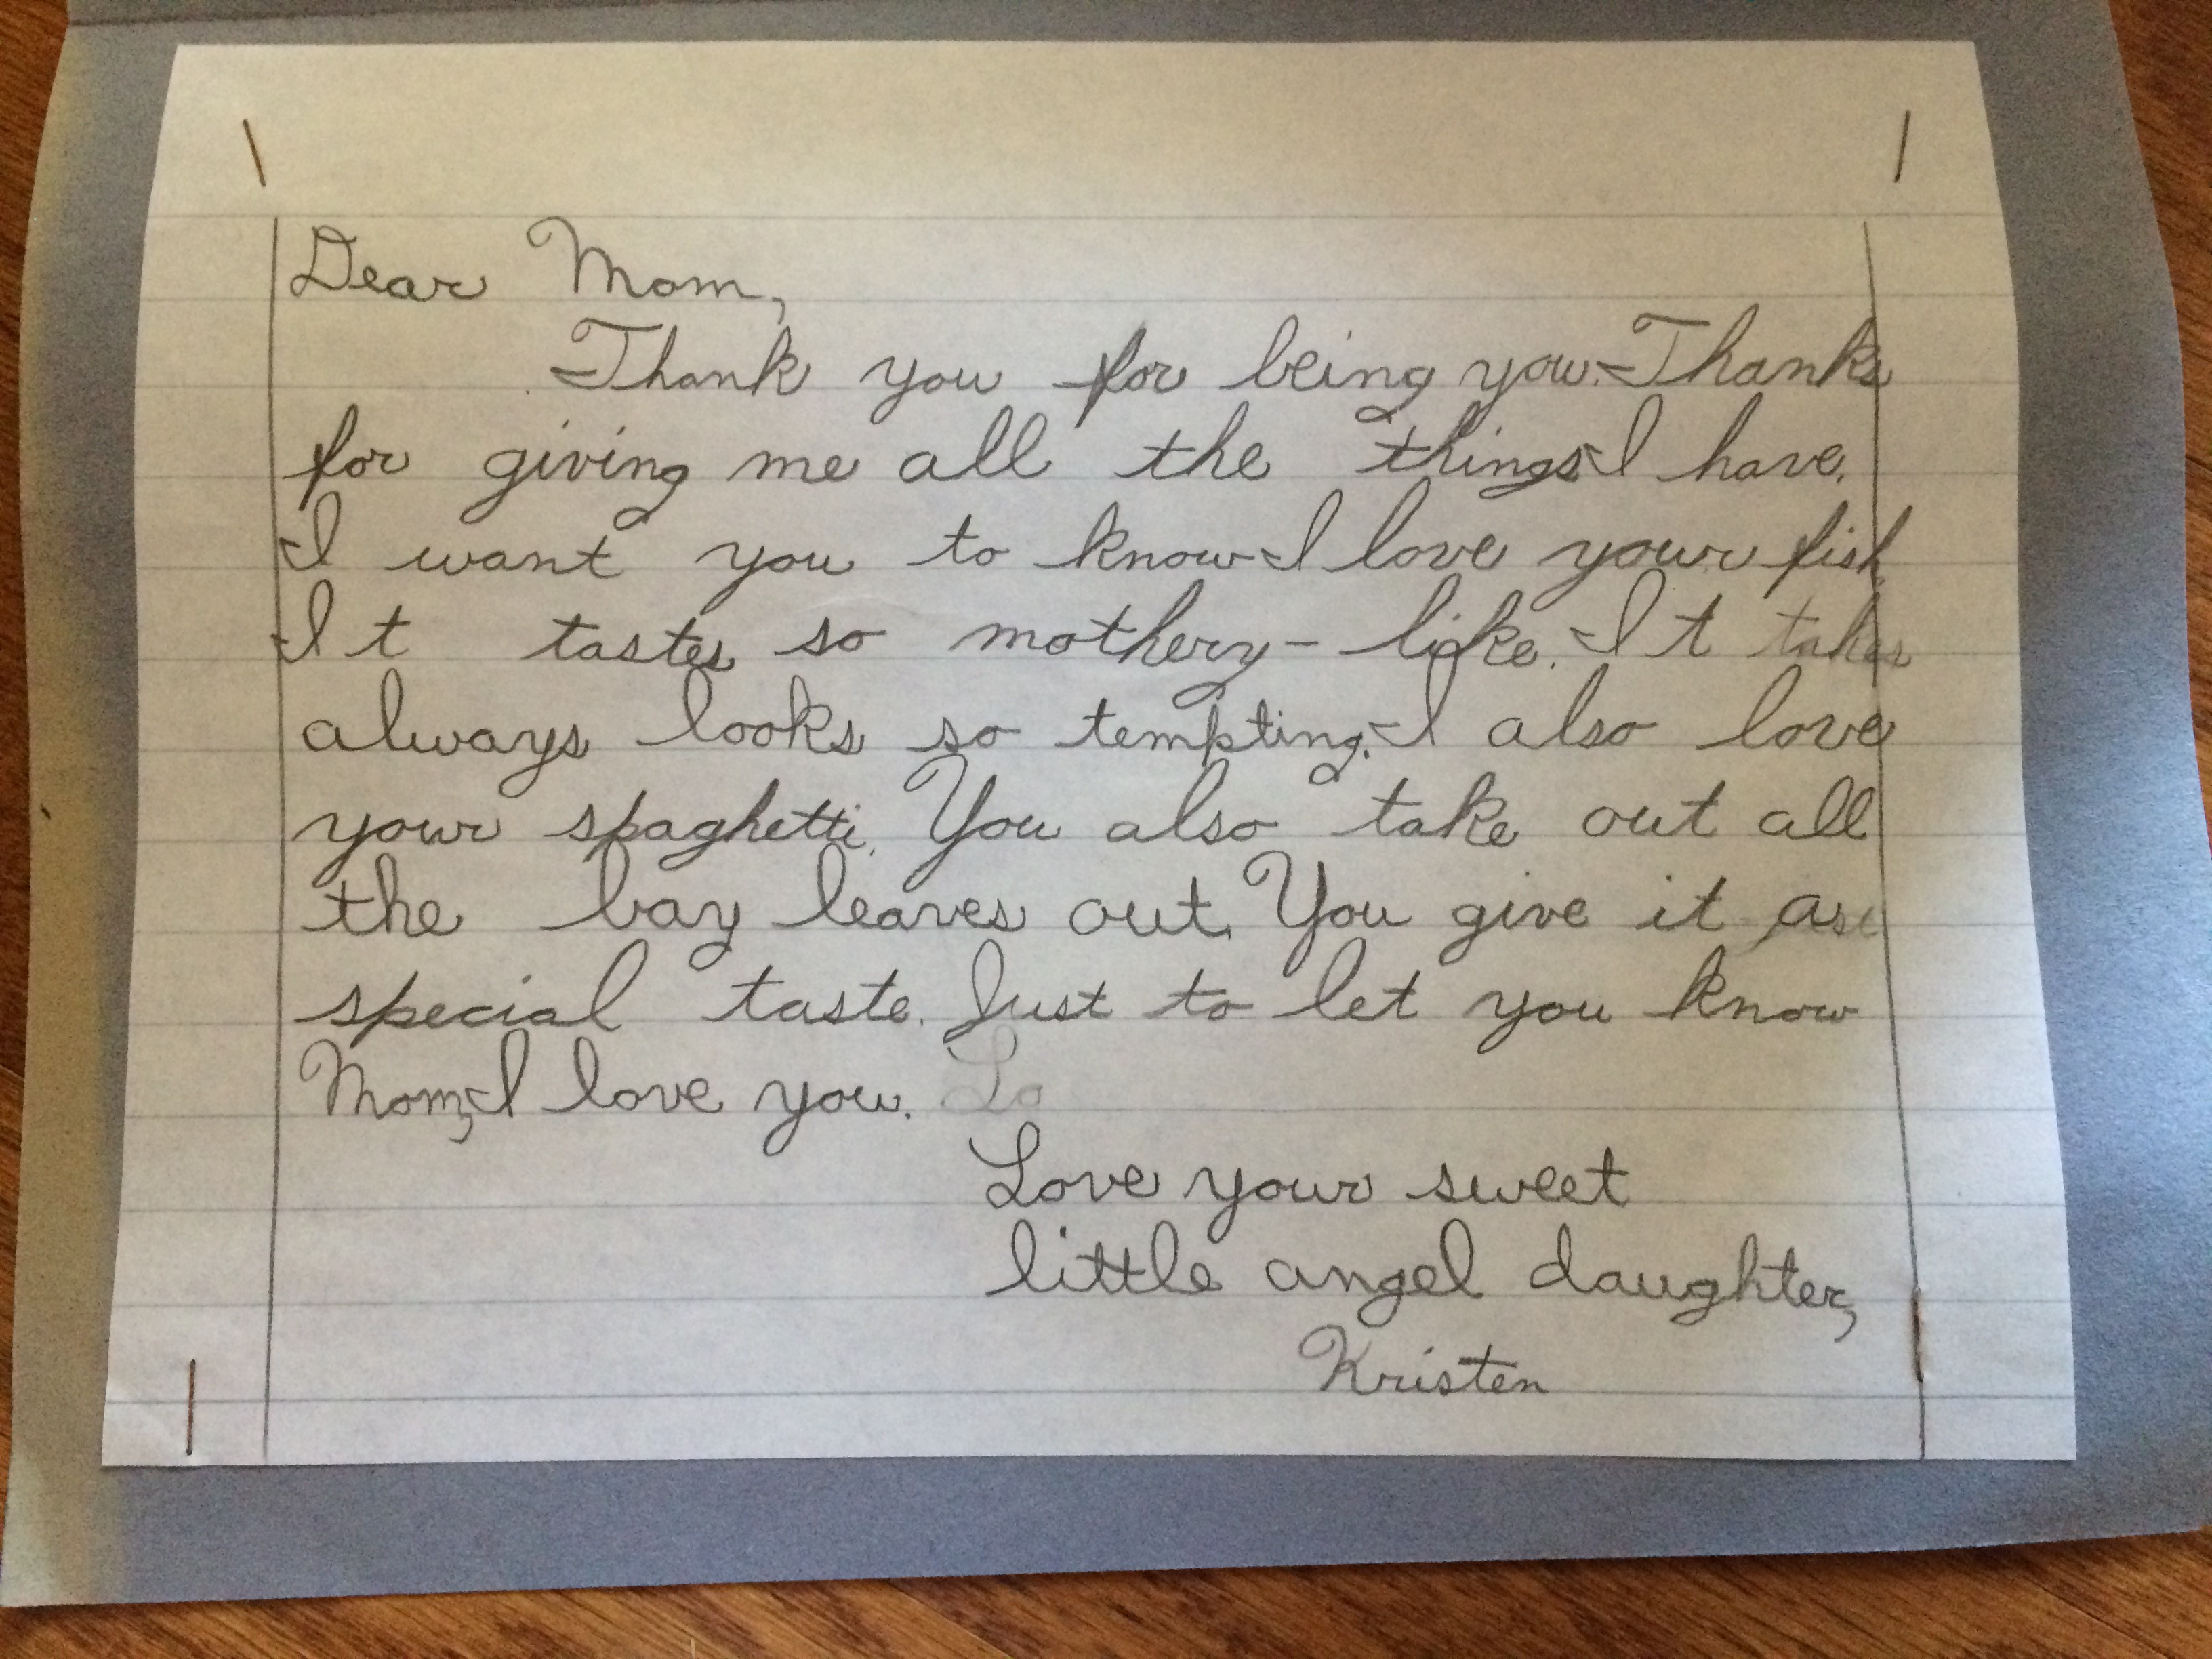 Dear Mom,
Thank you for being you. Thanks
for giving me all the things I have.
I want you to know I love your fish.
It tastes so mothery-like. It takes
always looks so tempting. I also love
your spaghetti. You also take out all
the bay leaves out. You give it a
special taste. Just to let you know
Mom, I love you. Lo
Love your sweet
little angel daughter,
Kristen